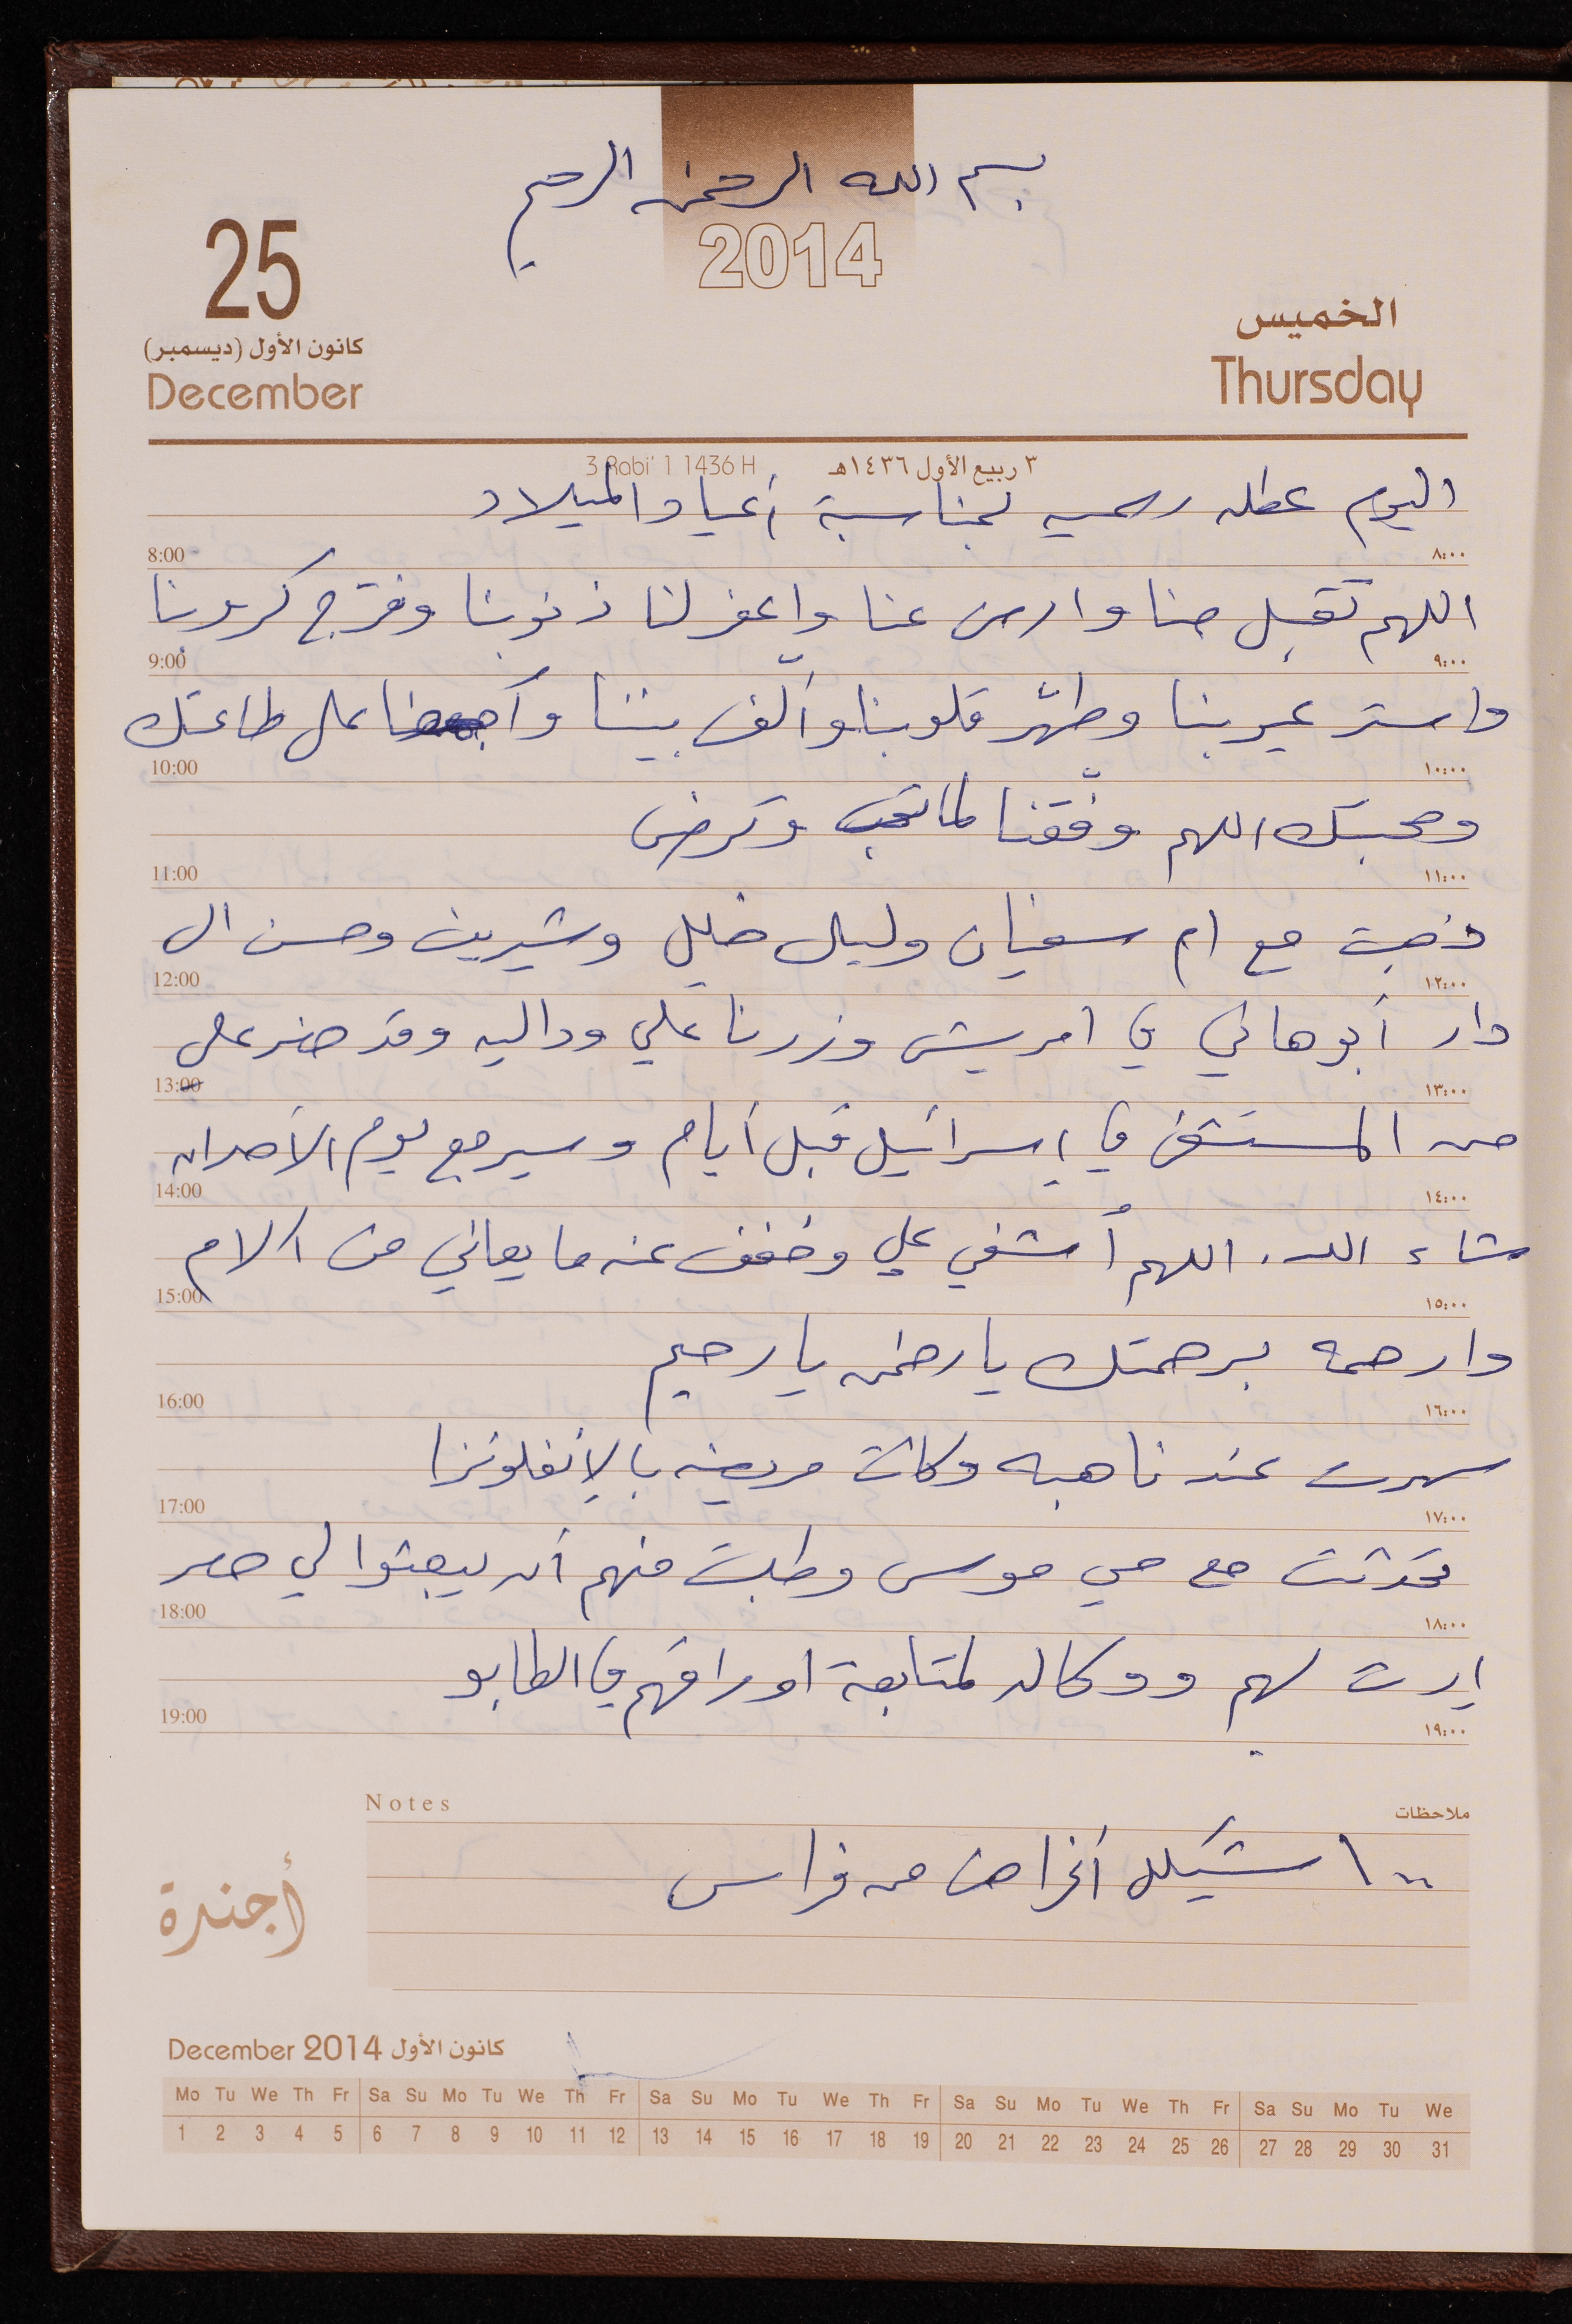 بسم الله الرحمن الرحيم
2014
25
كانون الأول (ديسمبر)
December
الخميس
Thursday
3 Rabi' 1 1436 H ٣ ربيع الأول ١٤٣٦هـ
اليوم عطله رسميه بمناسبة أعياد الميلاد
8:00 ٨:٠٠
اللهم تقبل منا وارض عنا واغفر لنا ذنوبنا وفرّج كروبنا
9:00 ٩:٠٠
واستر عيوبنا وطهّر قلوبنا وألّف بيننا وأجمعنا على طاعتك
10:00 ١٠:٠٠
ومحبتك اللهم وفّقنا لما تحب وترضى
11:00 ١١:٠٠
ذهبت مع ام سفيان وليلى خليل وشيرين وحسن الى
12:00 ١٢:٠٠
دار أبو هاني في امريش وزرنا علي وداليه وقد حضر علي
13:00 ١٣:٠٠
من المستشفى في إسرائيل قبل أيام وسيرجع يوم الأحد ان
14:00 ١٤:٠٠
شاء الله. اللهم أشفي علي وخفف عنه ما يعاني من الام
15:00 ١٥:٠٠
وارحمه برحمتك يا رحمن يا رحيم
16:00 ١٦:٠٠
سهرت عند ناهبه وكانت مريضه بالإنفلونزا
17:00 ١٧:٠٠
تحدثت مع مي موسى وطلبت منهم أن يبعثوا لي حصر
18:00 ١٨:٠٠
إرث لهم ووكاله لمتابعة اوراقهم في الطابو
19:00 ١٩:٠٠
Notes ملاحظات
١٠٠ شيكل أغراض من فراس
أجندة
December 2014 كانون الأول
Mo Tu We Th Fr Sa Su Mo Tu We Th Fr Sa Su Mo Tu We Th Fr Sa Su Mo Tu We Th Fr Sa Su Mo Tu We
1 2 3 4 5 6 7 8 9 10 11 12 13 14 15 16 17 18 19 20 21 22 23 24 25 26 27 28 29 30 31